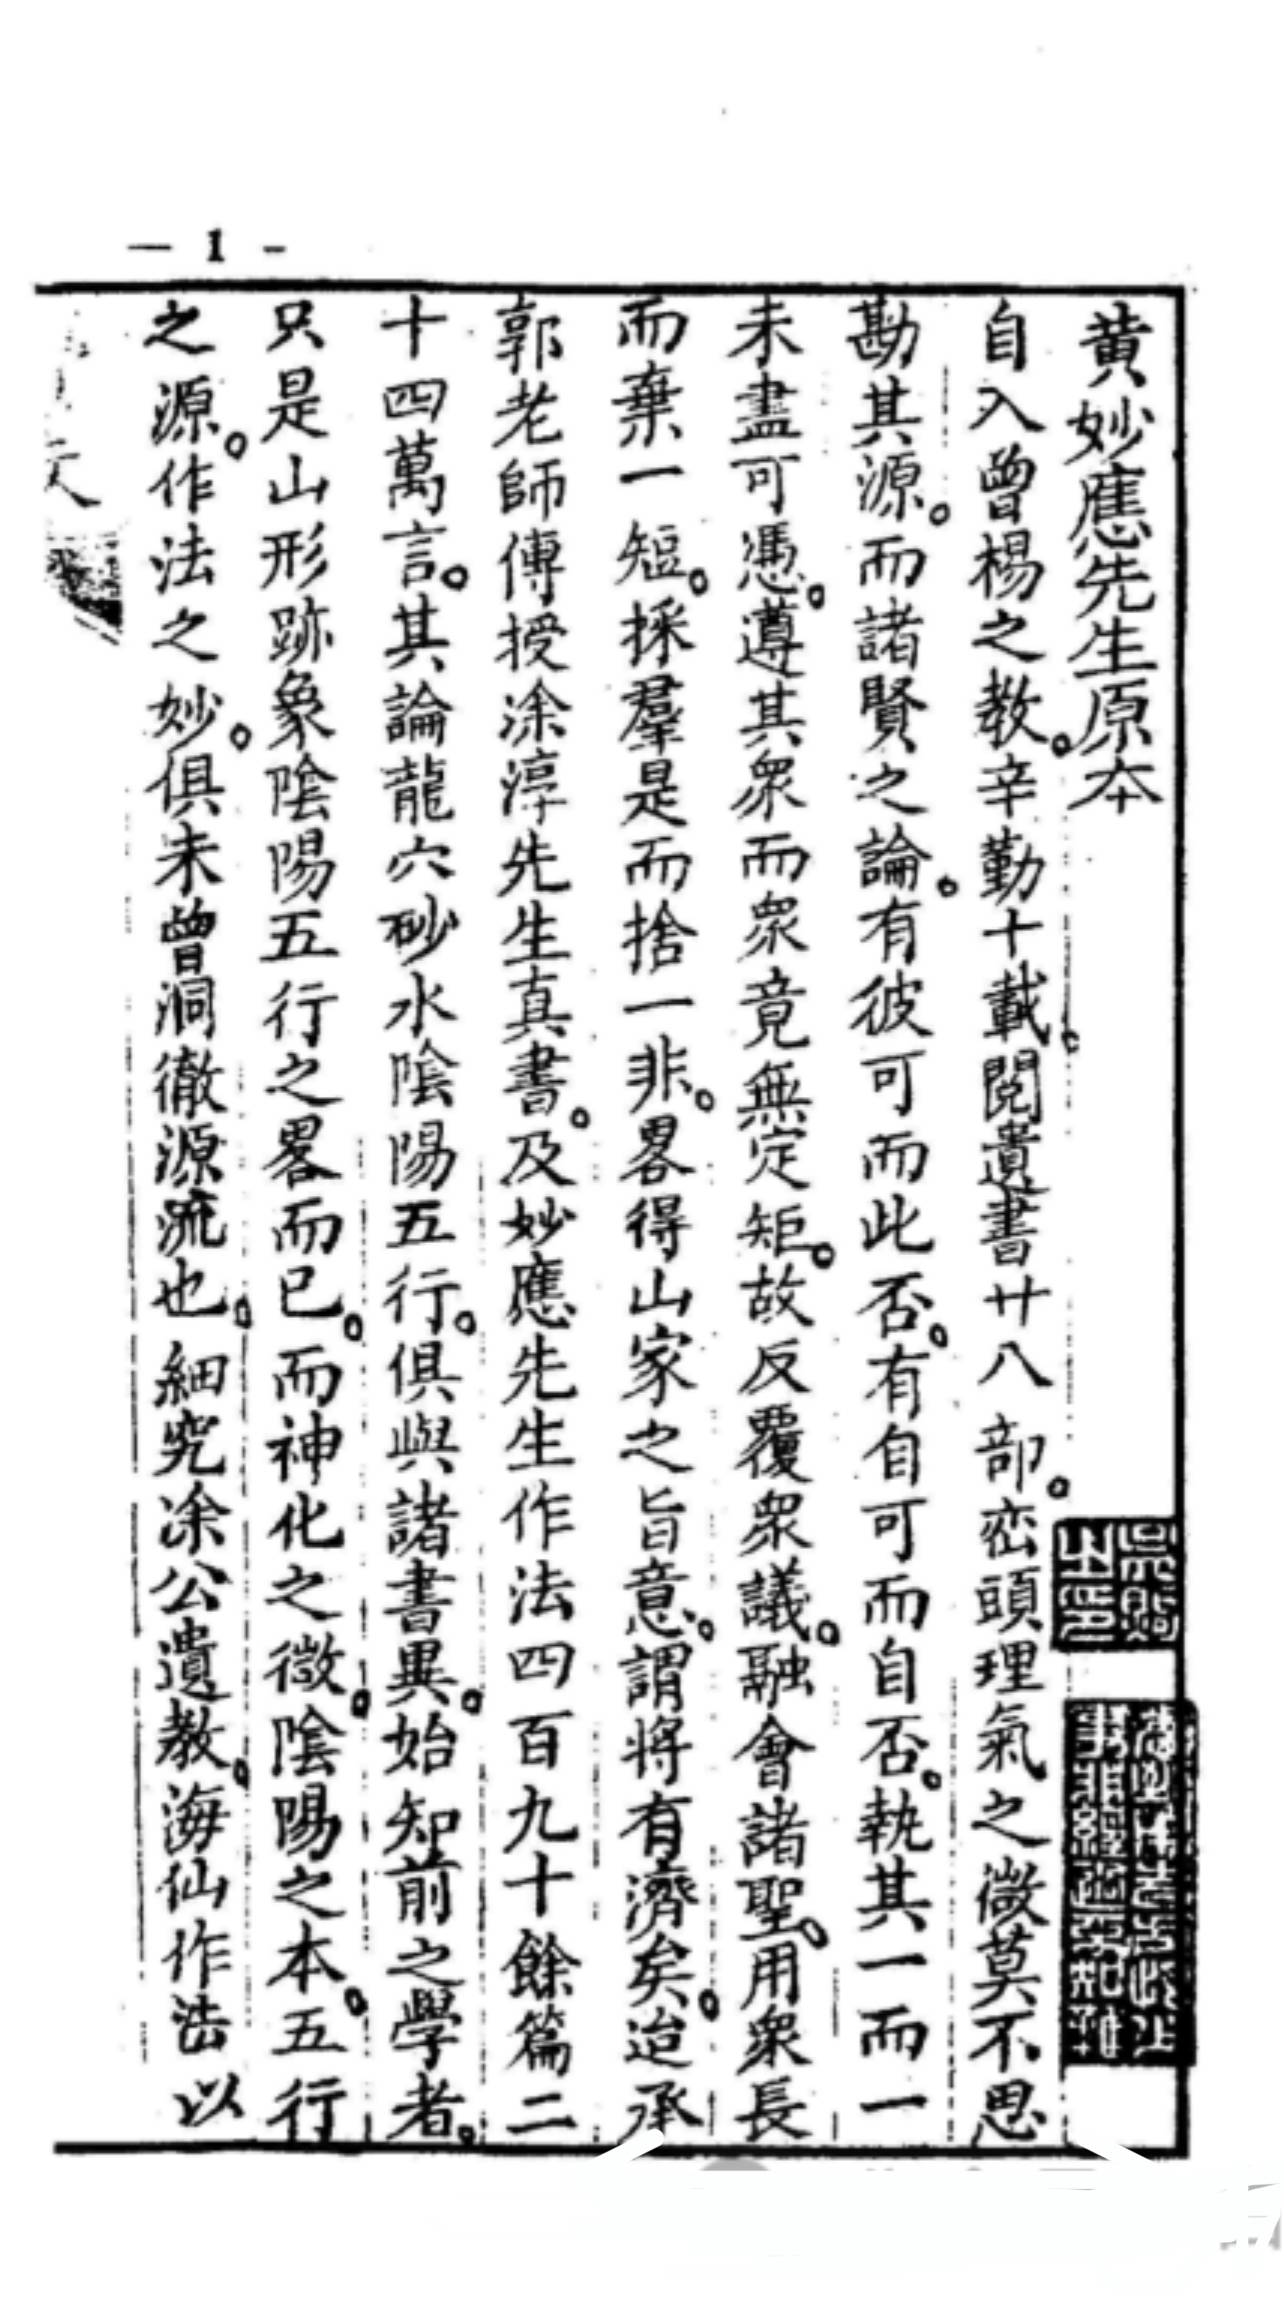 — 1 -
黄妙應先生原本
自入曾楊之教。辛勤十載。閱遺書廿八部。峦頭理氣之微莫不思
勘其源。而諸賢之論。有彼可而此否。有自可而自否。執其一而一
未盡可憑。遵其衆而衆竟無定矩。故反覆衆議。融會諸聖。用衆長
而棄一短。採羣是而捨一非。畧得山家之旨意。謂将有濟矣。迨承
郭老師傳授涂淳先生真書。及妙應先生作法四百九十餘篇二
十四萬言。其論龍穴砂水陰陽五行。俱與諸書異。始知前之學者。
只是山形跡象陰陽五行之畧而已。而神化之微。陰陽之本。五行
之源。作法之妙。俱未曾洞徹源流也。細究涂公遺教。海仙作法以